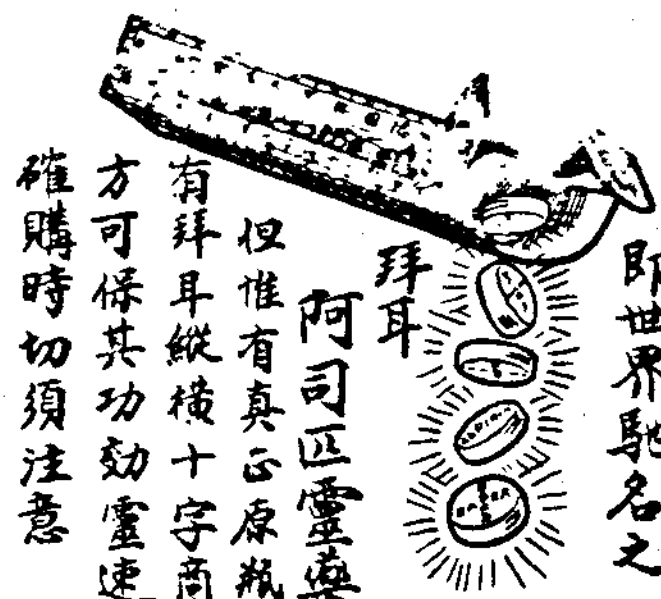 即世界馳名之
拜耳
阿司匹靈藥
但惟有真正原瓶
有拜耳縱橫十字商
方可保其功効靈速
確購時切須注意